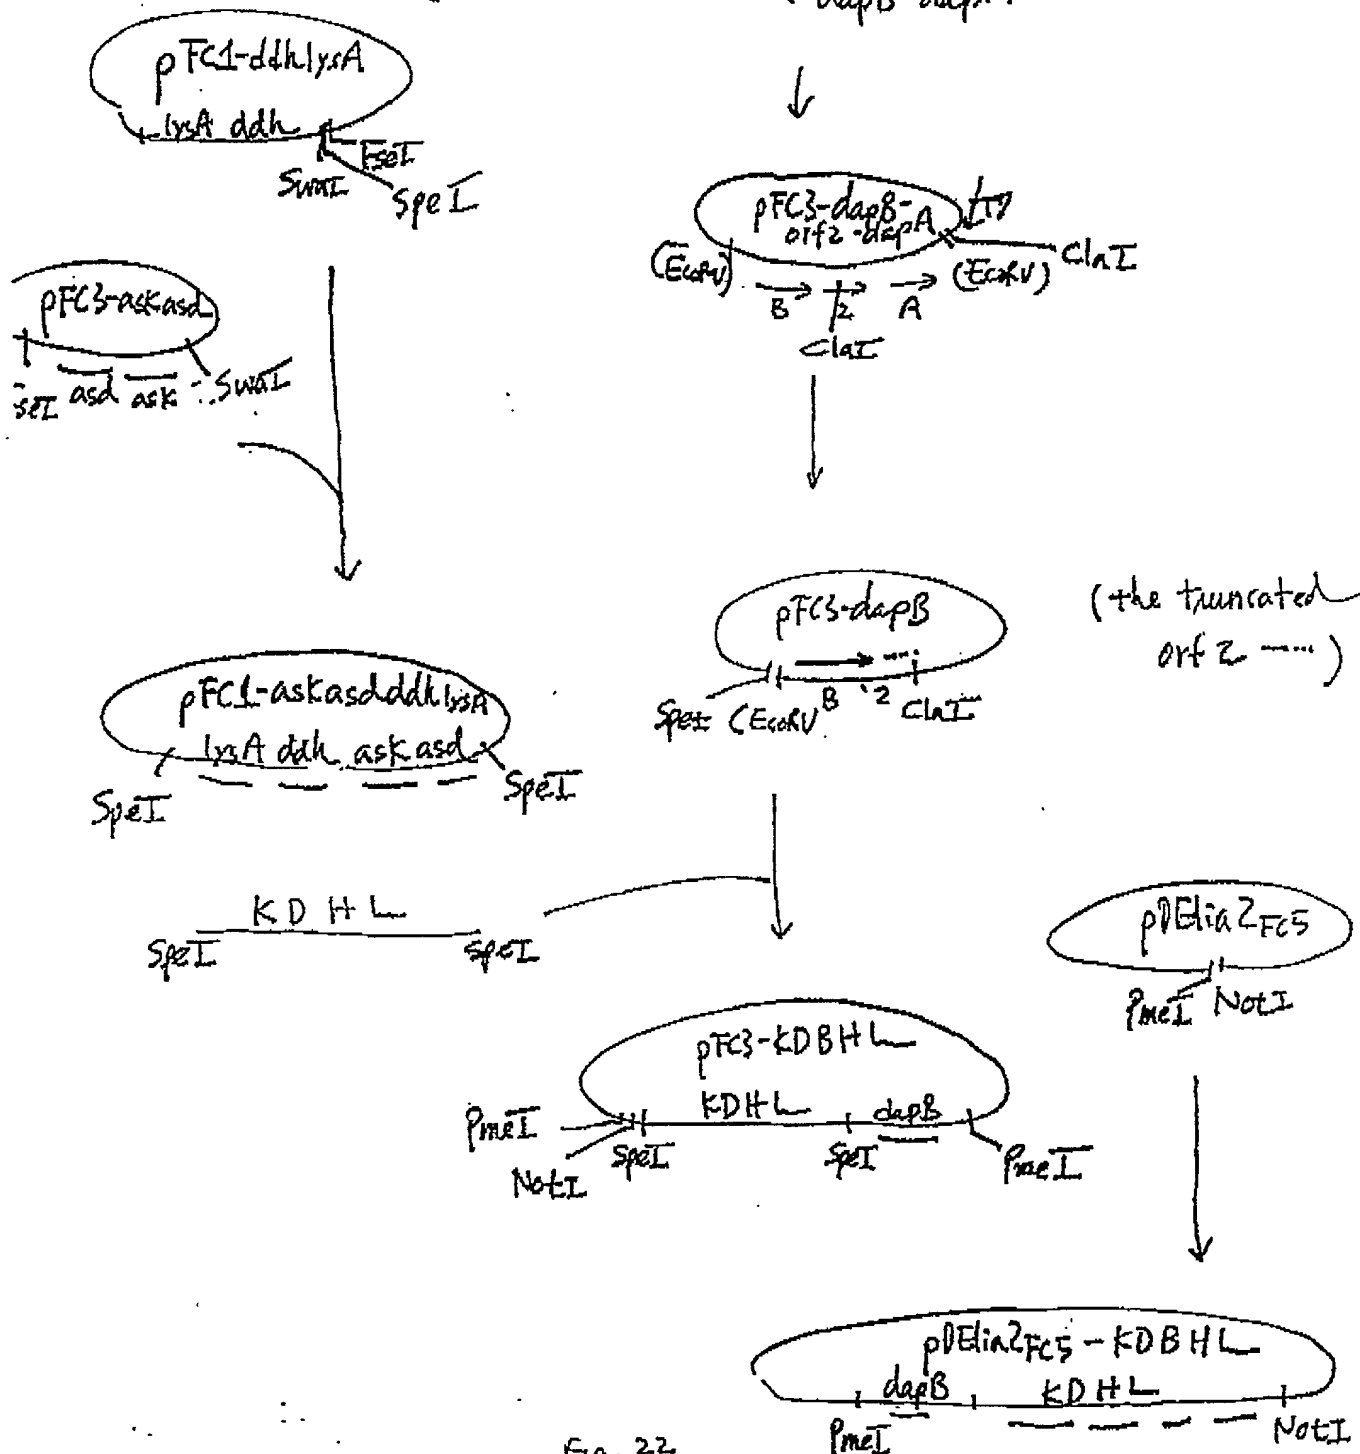 dapB dapA
pFC1-ddhlysA
lysA ddh
FseI
SwaI
SpeI
pFC3-dapB-
orf2-dapA
ClaI
(EcoRV)
(EcoRV)
B 2 A
ClaI
pFC3-askasd
seI asd ask SwaI
pFC3-dapB
B '2
SpeI (EcoRV ClaI
(the truncated
orf 2 ----)
pFC1-askasdddhlysA
lysA ddh ask asd
SpeI
SpeI
KDHL
SpeI SpeI
pDElia2FC5
PmeI NotI
pFC3-KDBHL
KDHL dapB
PmeI
NotI
SpeI SpeI
PmeI
pDElia2FC5-KDBHL
dapB KDHL
PmeI NotI
Fig. 22